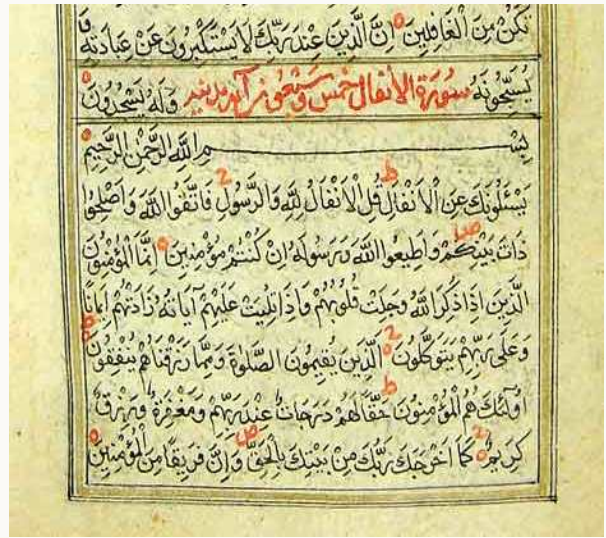 تَكُنْ مِنَ الْغَافِلِينَ إِنَّ الَّذِينَ عِنْدَ رَبِّكَ لَا يَسْتَكْبِرُونَ عَنْ عِبَادَتِهِ وَ
يُسَبِّحُونَهُ سورة الأنفال خمس وسبعون آية مدنية وَلَهُ يَسْجُدُونَ
بِسْمِ اللهِ الرَّحْمٰنِ الرَّحِيمِ
يَسْئَلُونَكَ عَنِ الْاَنْفَالِ ط قُلِ الْاَنْفَالُ لِلّٰهِ وَالرَّسُولِ فَاتَّقُوا اللهَ وَاَصْلِحُوا
ذَاتَ بَيْنِكُمْ وَاَطِيعُوا اللهَ وَرَسُولَهُ اِنْ كُنْتُمْ مُؤْمِنِينَ اِنَّمَا الْمُؤْمِنُونَ
الَّذِينَ اِذَا ذُكِرَ اللهُ وَجِلَتْ قُلُوبُهُمْ وَاِذَا تُلِيَتْ عَلَيْهِمْ آيَاتُهُ زَادَتْهُمْ اِيمَانًا
وَعَلَى رَبِّهِمْ يَتَوَكَّلُونَ اَلَّذِينَ يُقِيمُونَ الصَّلٰوةَ وَمِمَّا رَزَقْنَاهُمْ يُنْفِقُونَ
اُولٰئِكَ هُمُ الْمُؤْمِنُونَ حَقًّا ط لَهُمْ دَرَجَاتٌ عِنْدَ رَبِّهِمْ وَمَغْفِرَةٌ وَرِزْقٌ
كَرِيمٌ كَمَا اَخْرَجَكَ رَبُّكَ مِنْ بَيْتِكَ بِالْحَقِّ ص وَاِنَّ فَرِيقًا مِنَ الْمُؤْمِنِينَ